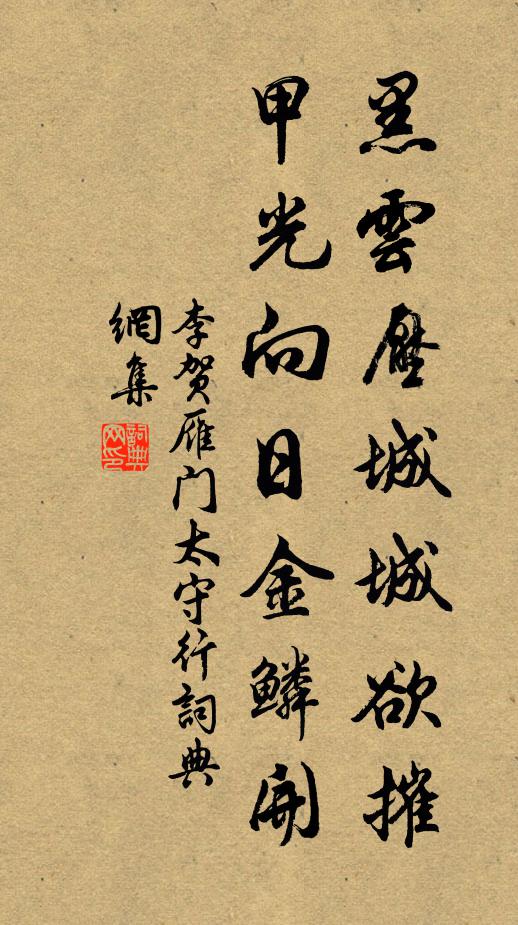 黑雲壓城城欲摧
甲光向日金鱗開
李賀雁门太守行詞典
網集
詞典網印